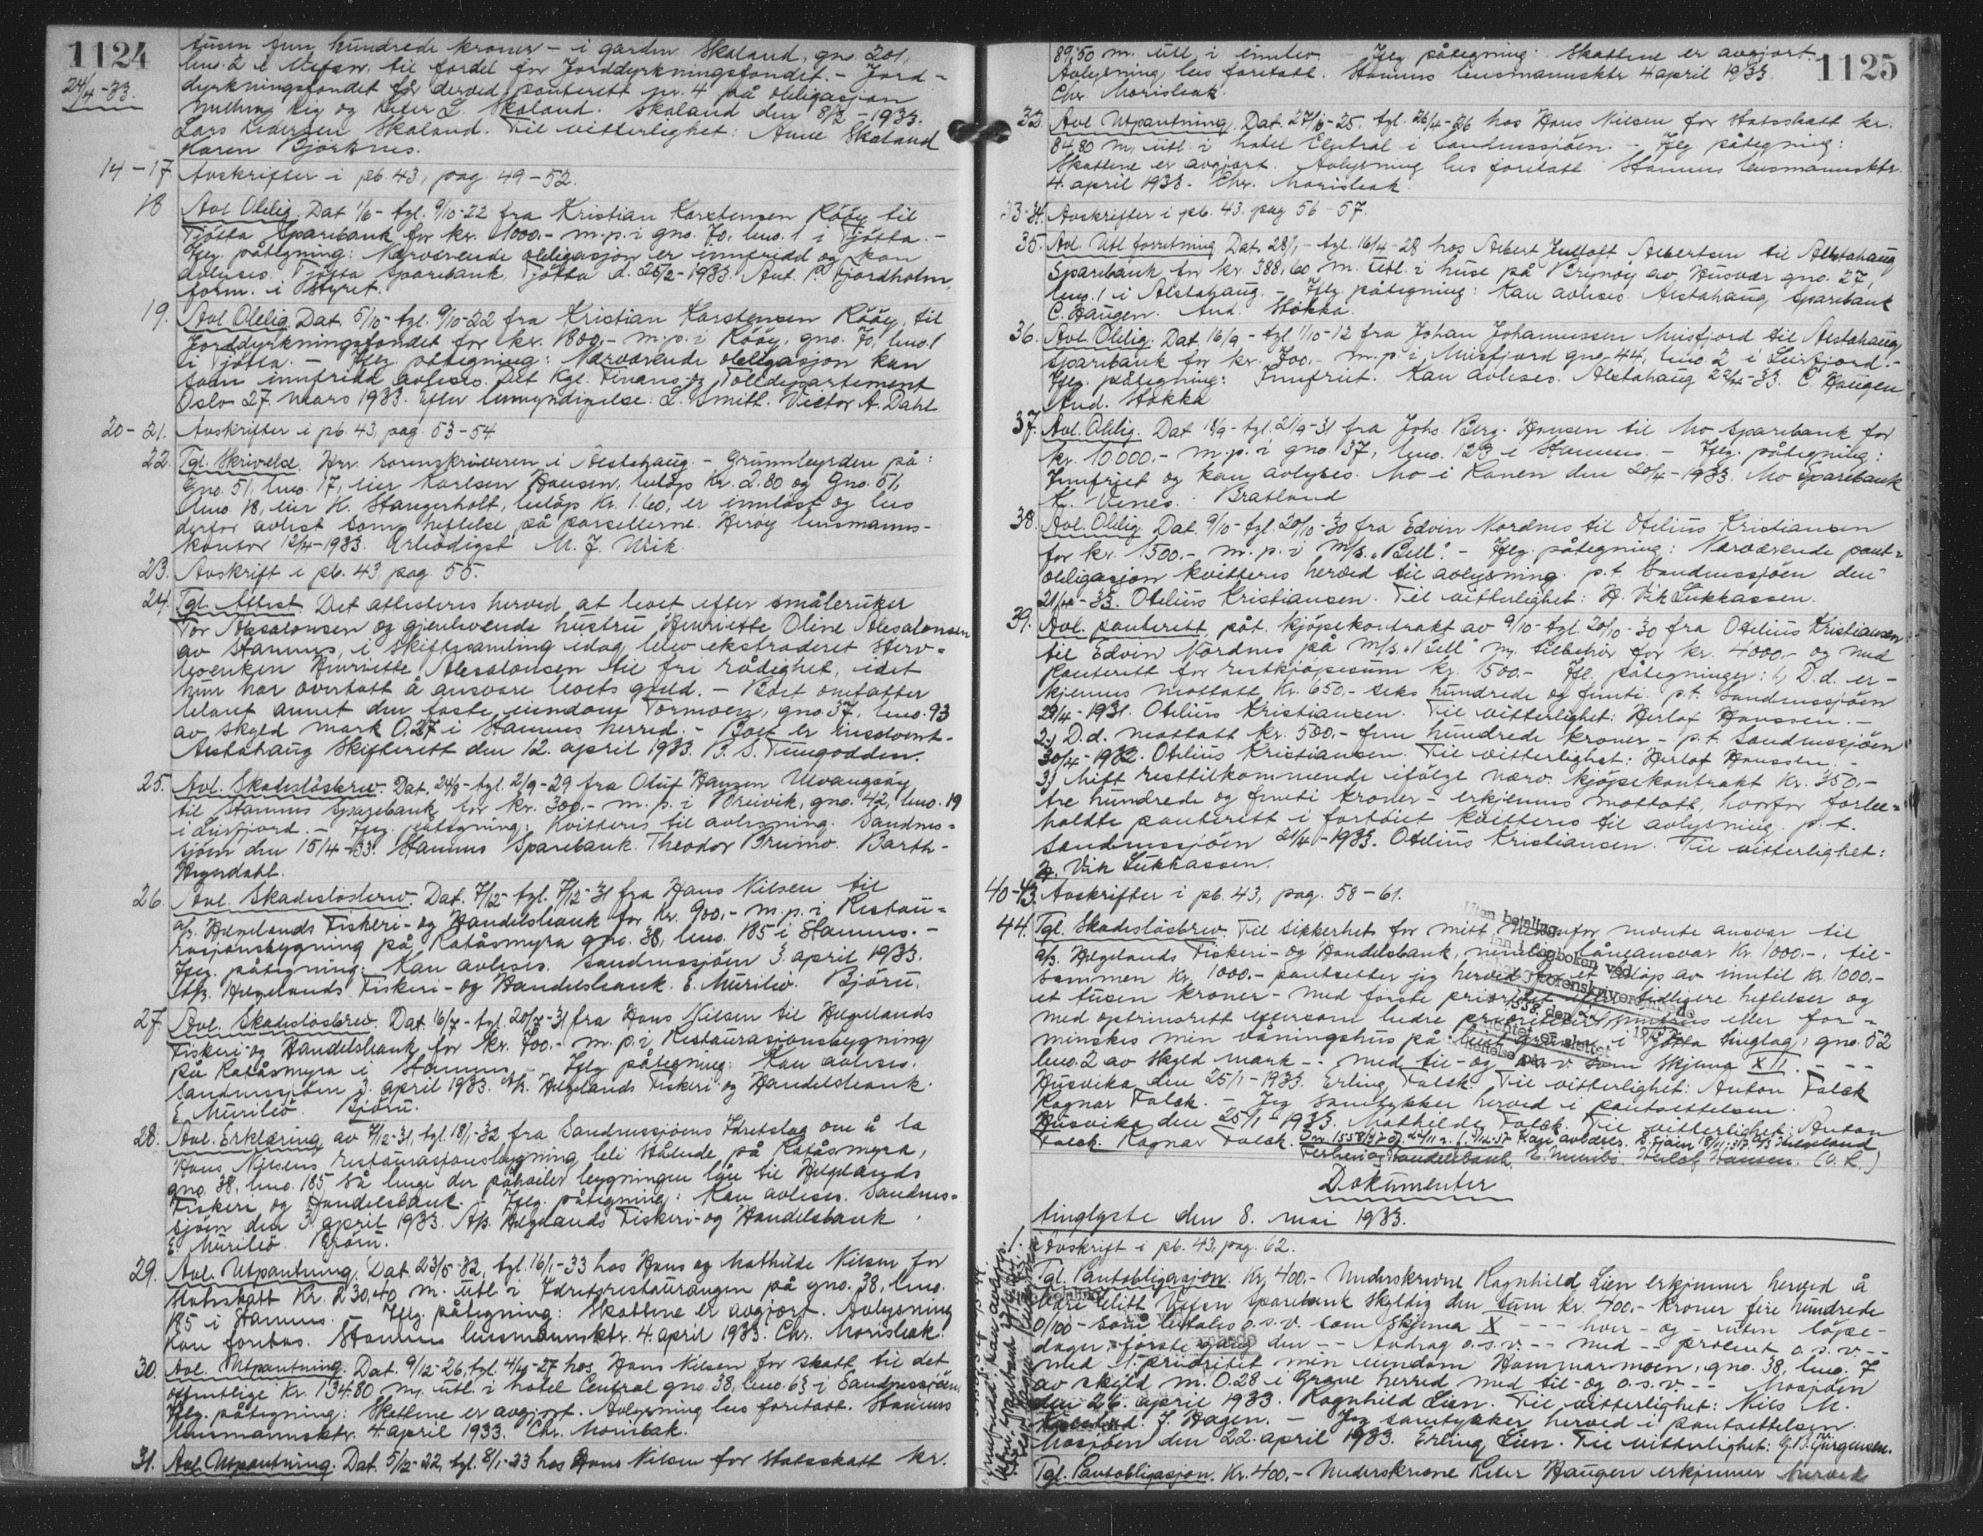 1124
24/4-33.
tusen fem hundrede kroner - i garden Skaland, gno. 201,
bno. 2 i Vefsn, til fordel for Jorddyrkningsfondet. - Jord-
dyrkningsfondet får derved panterett nr. 4 på obligasjon
mellem mig og Peter L. Skaland. Skaland den 8/2 - 1933.
Lars Pedersen Skaland. Til vitterlighet: Anne Skaland
Karen Björknes.
14-17. Avskrifter i pb. 43, pag. 49-52.
18 Avl. Oblig. Dat. 1/6 - tgl. 9/10-22 fra Kristian Karstensen Rööy til
Tjötta Sparebank for kr. 1000.- m.p. i gno. 70, bno. 1 i Tjötta. -
Iflg. påtegning: Nærværende obligasjon er innfridd og kan
avleses. Tjötta Sparebank, Tjötta d. 25/2-1933. Ant. P. Fjordholm,
form. i styret.
19. Avl. Oblig. Dat. 5/10 - tgl. 9/10-22 fra Kristian Karstensen Rööy til
Jorddyrkningsfondet for kr. 1800,- m.p. i Rööy, gno. 70, bno. 1
i Tjötta. - Iflg. påtegning: Nærværende obligasjon kan
som innfridd avleses. Det kgl. Finans- og Tolldepartement
Oslo 27. mars 1933. Efter bemyndigelse: L. Smith. Victor A. Dahl
20-21. Avskrifter i pb. 43, pag. 53-54.
22. Tgl. Skrivelse. Herr sorenskriveren i Alstahaug. - Grunnbyrden på:
Gno. 51, bno. 17, eier Karlsen Hansen, beløp kr. 2.80 og Gno. 51,
bno. 18, eier K. Stangerholt, beløp kr. 1.60, er innløst og bes
derfor avlest som heftelse på parsellerne. Herøy lensmanns-
kontor 12/4-1933. Ærbødigst M. J. Wik.
23. Avskrift i pb. 43, pag. 55.
24. Tgl. Attest. Det attesteres herved at boet efter småbruker
Tor Absalonsen og gjenlevende hustru Henriette Oline Absalonsen
av Stamnes, i skiftesamling idag blev ekstraderet stervboenken
Henriette Absalonsen til fri rådighet, idet
hun har overtatt å ansvare boets gjeld. - Boet omfatter
blant annet den faste eiendom Tormoen, gno. 37, bno. 93
av skyld mark 0.27 i Stamnes herred. - Boet er insolvent.
Alstahaug Skifterett den 12. april 1933. P. S. Tungodden.
25. Avl. Skadesløsbrev. Dat. 24/8 - tgl. 2/9-29 fra Oluf Hansen Ulvangsöy
til Stamnes Sparebank for kr. 300.- m.p. i Breivik, gno. 42, bno. 19
i Leirfjord. - Iflg. påtegning: Kvitteres til avlesning. Sandnes-
sjöen den 15/4-33. Stamnes Sparebank. Theodor Brunvo. Barth-
Heyerdahl.
26. Avl. Skadesløsbrev. Dat. 7/12 - tgl. 7/12-31 fra Hans Nilsen til
A/S. Helgelands Fiskeri- og Handelsbank for kr. 900,- m.p. i Restau-
rasjonsbygning på Kataasmyra gno. 38, bno. 185 i Stamnes. -
Iflg. påtegning: Kan avleses. Sandnessjöen 3. april 1933.
A/S. Helgelands Fiskeri- og Handelsbank. E. Muribö. Björu.
27. Avl. Skadesløsbrev. Dat. 16/7 - tgl. 20/7-31 fra Hans Nilsen til Helgelands
Fiskeri- og Handelsbank for kr. 700.- m.p. i Restaurasjonsbygning
på Kataasmyra i Stamnes. - Iflg. påtegning: Kan avleses.
Sandnessjöen 3. april 1933. A/S. Helgelands Fiskeri- og Handelsbank.
E. Muribö. Björu.
28. Avl. Erklæring av 7/12-31, tgl. 18/1-32 fra Sandnessjöens Idretslag om å la
Hans Nilsens restaurasjonsbygning bli stående på Kataasmyra,
gno. 38, bno. 185 så lenge der påhviler bygningen lån til Helgelands
Fiskeri og Handelsbank. - Iflg. påtegning: Kan avleses. Sandnes-
sjöen den 3. april 1933. A/S. Helgelands Fiskeri- og Handelsbank.
E. Muribö. Björu.
29. Avl. Utpantning. Dat. 23/5-32, tgl. 16/1-33 hos Hans og Mathilde Nilsen for
Statsskatt kr. 230,40 m. utl. i Idretsrestaurangen på gno. 38, bno.
185 i Stamnes. - Iflg. påtegning: Skattene er avgjort. Avlysning
kan foretas. Stamnes lensmannsktr. 4. april 1933. Chr. Morisbak.
30. Avl. Utpantning. Dat. 9/12-26, tgl. 4/4-27 hos Hans Nilsen for skatt til det
offentlige kr. 134.80 m. utl. i hotel Central gno. 38, bno. 63 i Sandnessjöen.
Iflg. påtegning: Skattene er avgjort. Avlysning bes foretatt. Stamnes
lensmannsktr. 4. april 1933. Chr. Morisbak.
31. Avl. Utpantning. Dat. 5/12-22, tgl. 8/1-23 hos Hans Nilsen for Statsskatt kr.
1125
89,50 m. utl. i innbo. Iflg. påtegning: Skattene er avgjort.
Avlysning bes foretatt. Stamnes lensmannsktr. 4 april 1933.
Chr. Morisbak.
32. Avl. Utpantning. Dat. 27/8-25, tgl. 26/4-26 hos Hans Nilsen for Statsskatt kr.
84.80 m. utl. i hotel Central i Sandnessjöen. - Iflg. påtegning:
Skattene er avgjort. Avlysning bes foretatt. Stamnes lensmannsktr.
4. april 1933. Chr. Morisbak.
33-34. Avskrifter i pb. 43, pag. 56-57.
35. Avl. Utl. forretning. Dat. 28/1 - tgl. 16/4-28 hos Albert Albertsen til Alstahaug
Sparebank for kr. 388,60 m. utl. i huse på Brynöy av Husvær gno. 27,
bno. 1 i Alstahaug. - Iflg. påtegning: Kan avleses. Alstahaug Sparebank
C. Haugen. And. Stokka.
36. Avl. Oblig. Dat. 16/9 - tgl. 1/10-12 fra Johan Johannessen Meisfjord til Alstahaug
Sparebank for kr. 700.- m.p. i Meisfjord gno. 44, bno. 2 i Leirfjord. -
Iflg. påtegning: Innfriet. Kan avleses. Alstahaug 22/4-33. C. Haugen
And. Stokka
37. Avl. Oblig. Dat. 18/9 - tgl. 21/9-31 fra Johs. Berg-Hansen til Mo Sparebank for
kr. 10000.- m.p. i gno. 37, bno. 123 i Stamnes. - Iflg. påtegning:
Innfriet og kan avlyses. Mo i Ranen den 20/4-1933. Mo Sparebank
K. Venes. Bratland
38. Avl. Oblig. Dat. 9/10 - tgl. 20/10-30 fra Edvin Nordnes til Otelius Kristiansen
for kr. 1500.- m.p. i M/S. "Bell". - Iflg. påtegning: Nærværende pant-
obligasjon kvitteres herved til avlysning. p.t. Sandnessjöen den
21/4-33. Otelius Kristiansen. Til vitterlighet: H. Vik Lukkassen.
39. Avl. panterett, påt. kjöpekontrakt av 9/10 - tgl. 20/10-30 fra Otelius Kristiansen
til Edvin Nordnes på M/S. "Bell" m. tilbehör for kr. 4000.- og med
panterett for restkjöpesum kr. 1500.- Iflg. påtegninger: 1) D.d. er-
kjennes mottatt kr. 650,- seks hundrede og femti. p.t. Sandnessjöen
29/4-1931. Otelius Kristiansen. Til vitterlighet: Herlof Hanssen. -
2) D.d. mottatt kr. 500,- fem hundrede kroner - p.t. Sandnessjöen
30/4-1932. Otelius Kristiansen. Til vitterlighet: Herlof Hanssen. -
3) Mitt resttilkommende ifölge nærv. kjöpekontrakt kr. 350,-
tre hundrede og femti kroner - erkjennes mottatt, hvorfor forbe-
holdte panterett i fartöiet kvitteres til avlysning. p.t.
Sandnessjöen 21/4-1933. Otelius Kristiansen. Til vitterlighet:
H. Vik Lukkassen.
40-43. Avskrifter i pb. 43, pag. 58-61.
44. Tgl. Skadesløsbrev. Til sikkerhet for mitt nedenfor nevnte ansvar til
A/S. Helgelands Fiskeri- og Handelsbank, nemlig låneansvar kr. 1000.-, til-
sammen kr. 1000.- pantsetter jeg herved for et beløp av inntil kr. 1000.-
et tusen kroner - med første prioritet efter tidligere heftelser og
med optrinsrett eftersom bedre prioriteter innfries eller for-
minskes min våningshus på i Tjötta tinglag, gno. 52
bno. 2 av skyld mark - - med til- og o.s.v. som skjema XII. - - -
Husvika den 25/1-1933. Erling Falck. Til vitterlighet: Anton Falck
Ragnar Falck. - Jeg samtykker herved i pantsettelsen.
Husvika den 25/1-1933. Mathilde Falck. Til vitterlighet: Anton
Falck. Ragnar Falck. Kan avleses. S.sjöen 18/11-37. A/S Helgeland
Fiskeri og Handelsbank, E. Muribö. Hansen. (O. K.)
Dokumenter
tinglyste den 8. mai 1933.
1. Avskrift i pb. 43, pag. 62.
Tgl. Pantobligasjon. Kr. 400.- Underskrevne Ragnhild Lien erkjenner herved å
være blitt Vefsn Sparebank skyldig den sum kr. 400.- kroner fire hundrede
0/100 - som betales o.s.v. som skjema X - - - hver - og - uten löpe-
dager - förste gang den - - Avdrag o.s.v. - - med - - procent o.s.v. - -
med 1. prioritet min eiendom Hammarmoen, gno. 38, bno. 7
av skyld m. 0.28 i Grane herred med til- og o.s.v. - - Mosjöen
den 26. april 1933. Ragnhild Lien. Til vitterlighet: Nils M.
J. Hagen. - Jeg samtykker herved i pantsettelsen.
Mosjöen den 22. april 1933. Erling Lien. Til vitterlighet: G. B. Jürgensen.
Tgl. Pantobligasjon. Kr. 400.- Underskrevne Peter Haugen erkjenner herved